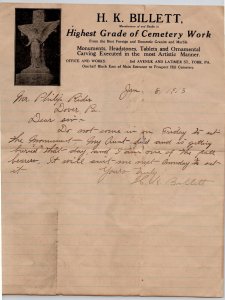 H. K. BILLETT,
Manufacturer of and Dealer in
Highest Grade of Cemetery Work
From the Best Foreign and Domestic Granite and Marble
Monuments, Headstones, Tablets and Ornamental
Carving Executed in the most Artistic Manner.
OFFICE AND WORKS 3rd AVENUE AND LATIMER ST., YORK, PA.
One-half Block East of Main Entrance to Prospect Hill Cemetery
Jan. 8
Mr. Philip
Dover
Dear sir-
Do not come in on Friday to set
the monument - my Aunt died and is getting
buried that day, and I am one of the pall
bearers. It will suit me next to set
it
Yours Truly
H. K. Billett